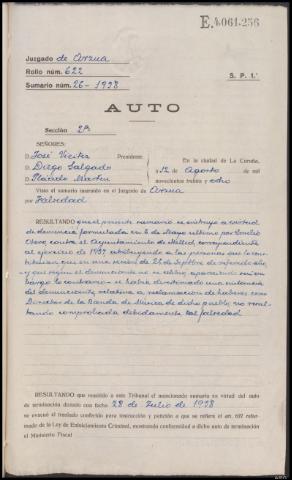 E.4.061.256
Juzgado de Arzua
Rollo núm. 622
Sumario núm. 26 - 1938
S. P. 1.ª
AUTO
Sección 2ª
SEÑORES:
D. José Vieites Presidente
D. Diego Salgado
D. Plácido Martin
En la ciudad de La Coruña,
a 12 de Agosto de mil
novecientos treinta y ocho
Visto el sumario instruido en el Juzgado de Arzua
por falsedad
RESULTANDO que el presente sumario se instruyó a virtud
de denuncia formulada en 6 de Mayo ultimo por Emilio
contra el Ayuntamiento de Mellid, correspondiente
al ejercicio de 1937 atribuyendo a las personas que lo cons-
tituian que en una sesion de 22 de Septbre de referido año
y que según el denunciante no se celebró, apareciendo sin em-
bargo lo contrario - se habia desestimado una instancia
del denunciante, relativa a reclamacion de haberes como
Director de la Banda de Música de dicho pueblo, no resul-
tando comprobada debidamente tal falsedad.
RESULTANDO que remitido a este Tribunal el mencionado sumario en virtud del auto
de terminación dictado con fecha 28 de Julio de 1938
se evacuó el traslado conferido para instrucción y petición a que se refiere el art. 627 refor-
mado de la Ley de Enjuiciamiento Criminal, mostrando conformidad a dicho auto de terminación
el Ministerio Fiscal